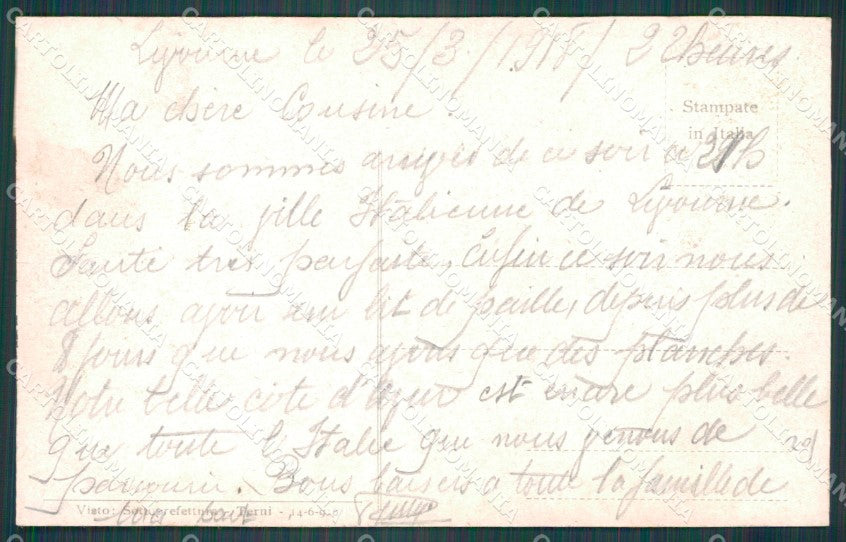 Livourne le 25/3/1918/ 22 heures
Ma chère Cousine.
Stampate
in Italia
Nous sommes arrivés de ce soir a 21h
dans la ville Italienne de Livourne.
Santé tres parfaite, enfin ce soir nous
allons avoir un lit de paille, depuis plus de
8 jours que nous avons que des planches.
Votre belle côte d'Azur est encore plus belle
que toute l'Italie que nous venons de
parcourir. Bons baisers a toute la famille de
Visto: Sottoprefettura Terni - 14-6-9
ma part
CARTOLINOMANIA